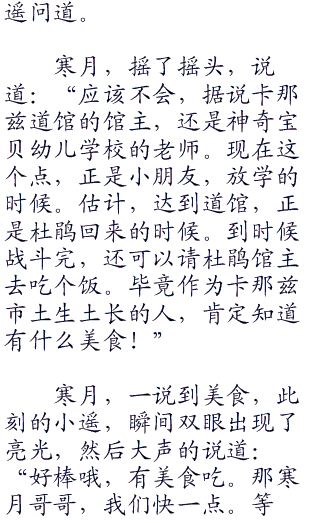 遥问道。
寒月，摇了摇头，说
道：“应该不会，据说卡那
兹道馆的馆主，还是神奇宝
贝幼儿学校的老师。现在这
个点，正是小朋友，放学的
时候。估计，达到道馆，正
是杜鹃回来的时候。到时候
战斗完，还可以请杜鹃馆主
去吃个饭。毕竟作为卡那兹
市土生土长的人，肯定知道
有什么美食！”
寒月，一说到美食，此
刻的小遥，瞬间双眼出现了
亮光，然后大声的说道：
“好棒哦，有美食吃。那寒
月哥哥，我们快一点。等